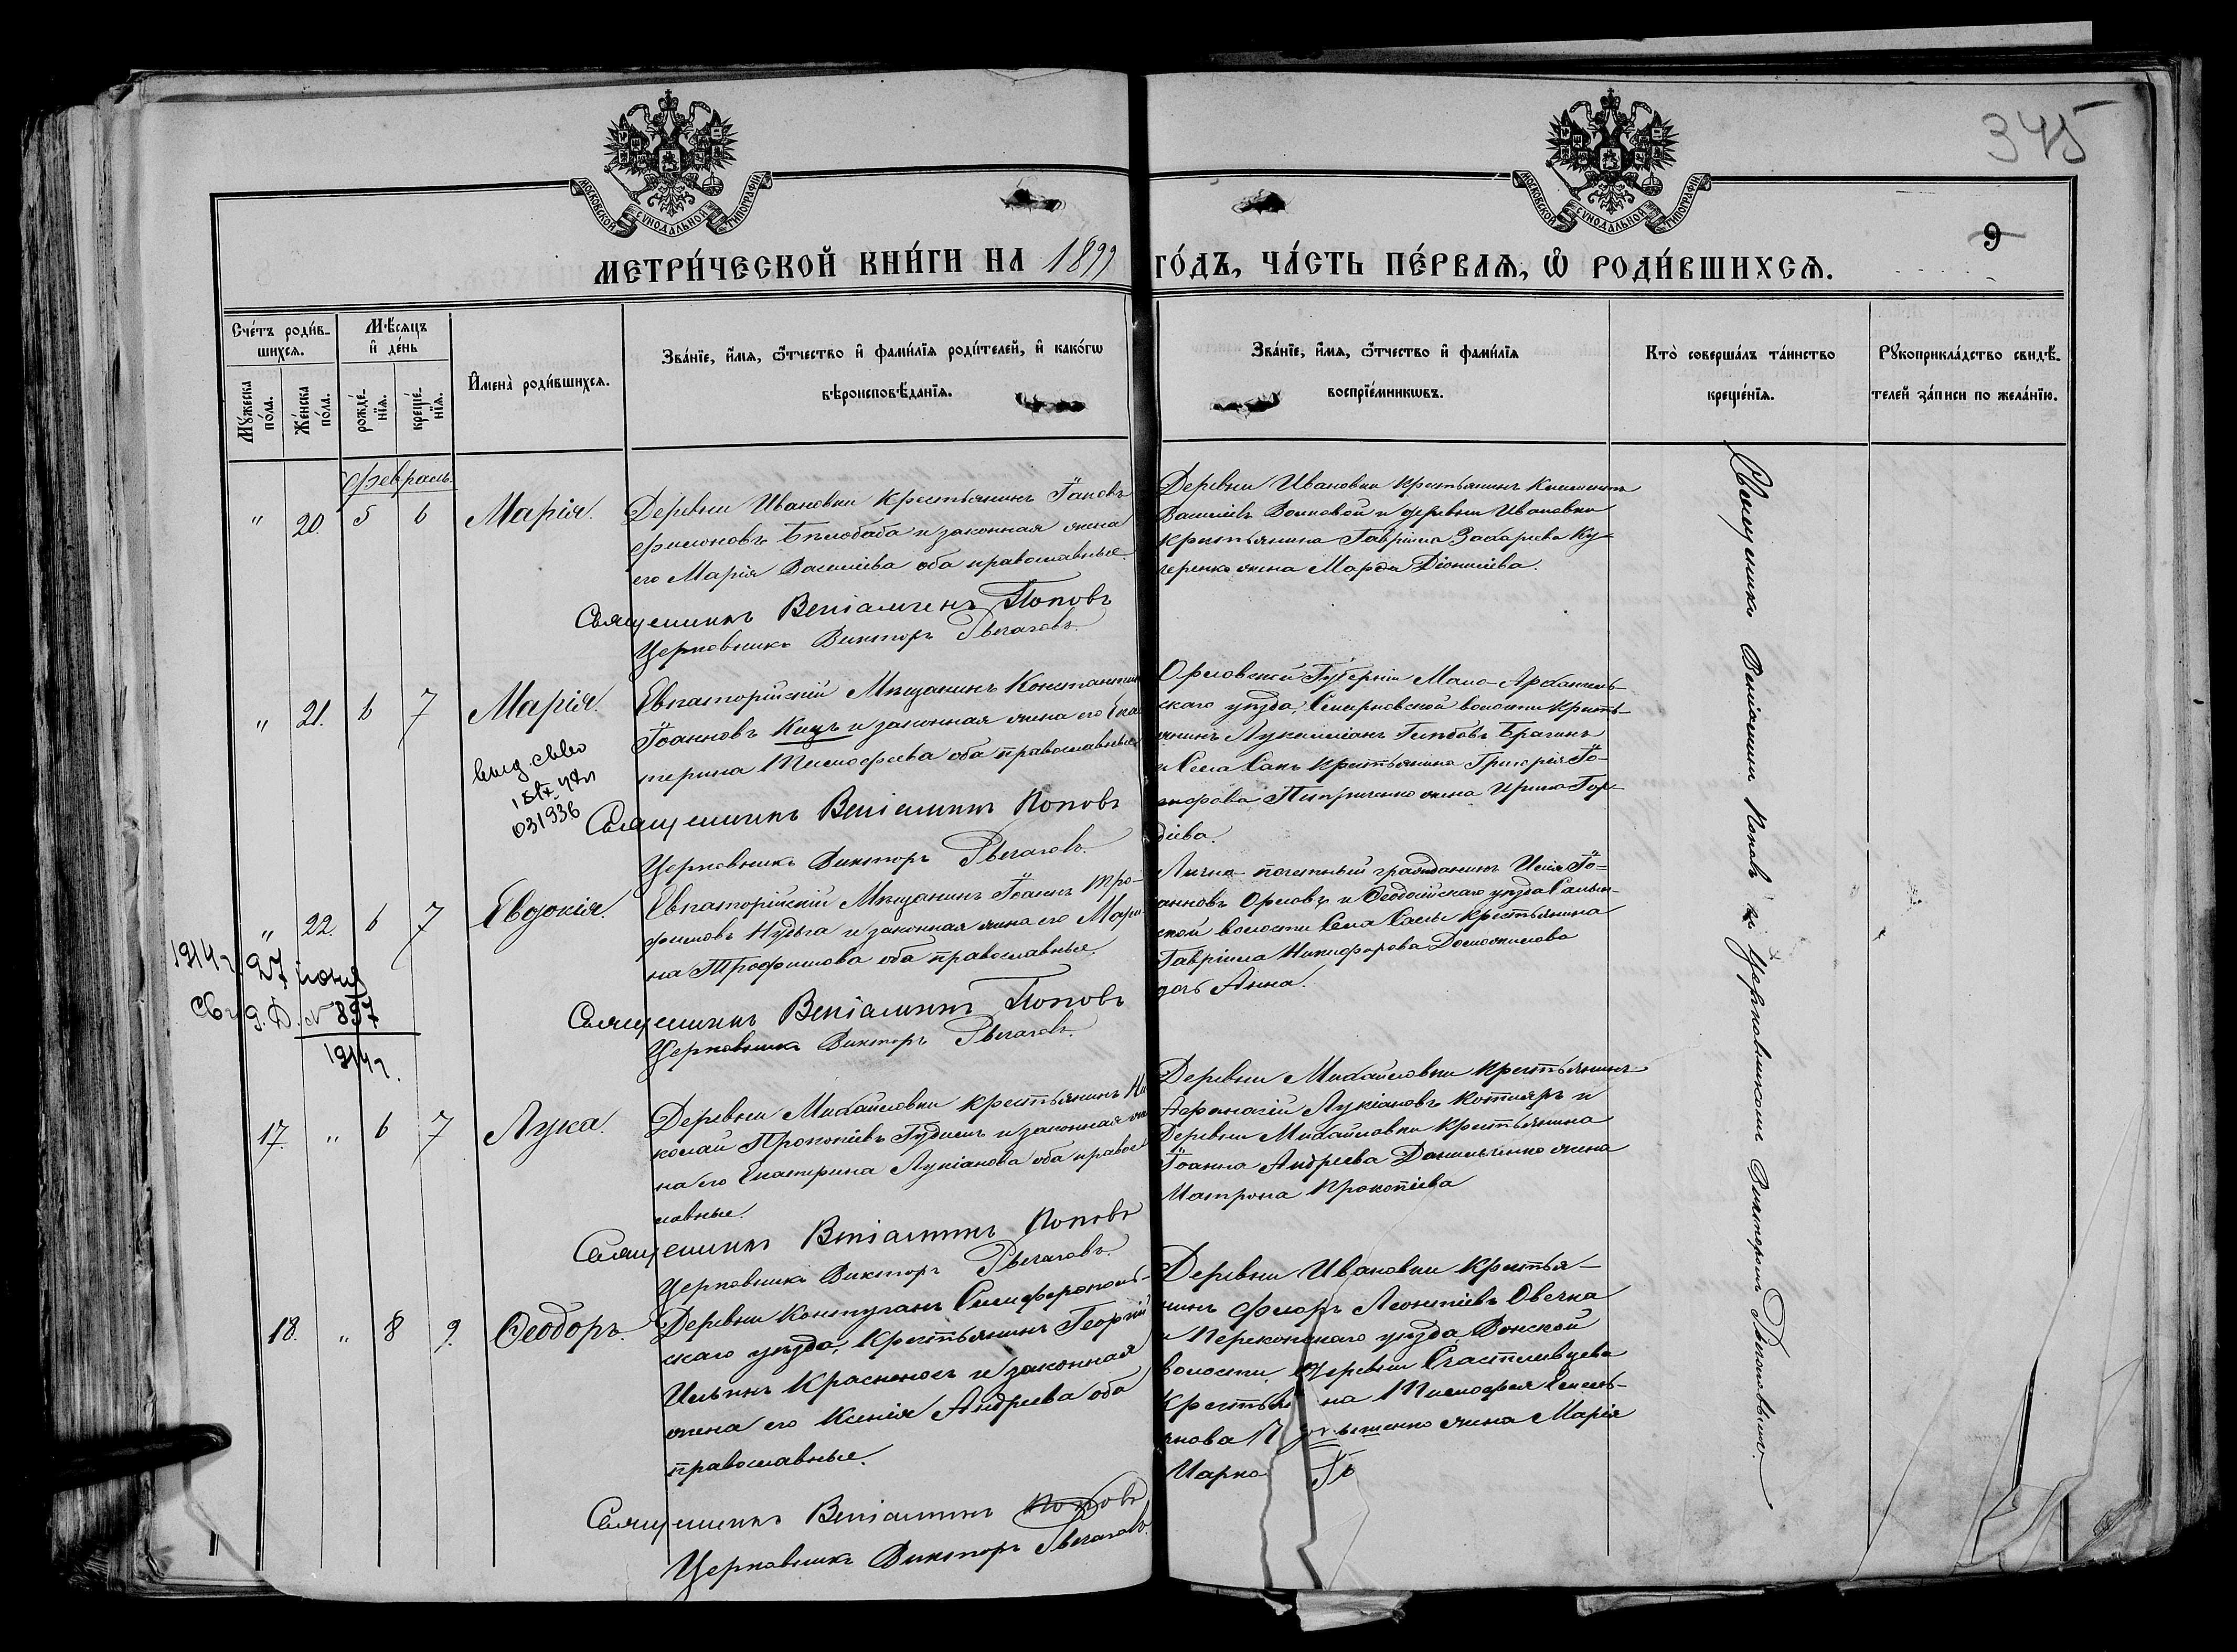 345
9
МОСКОВСКОЙ СУНОДАЛЬНОЙ ТИПОГРАФІИ
МОСКОВСКОЙ СУНОДАЛЬНОЙ ТИПОГРАФІИ
МЕТРИ́ЧЕСКОЙ КНИ́ГИ НА 1899 ГО́ДЪ, ЧА́СТЬ ПЕ́РВАЯ, Ѡ РОДИ́ВШИХСЯ.
Сче́тъ роди́в-
шихся.
Му́жеска
по́ла.
Же́нска
по́ла.
Мѣ́сяцъ
и де́нь
рожде́-
нія.
креще́-
нія.
Имена̀ роди́вшихся.
Зва́ніе, и́мя, ѻ́тчество и фами́лія роди́телей, и како́гѡ
вѣроисповѣ́данія.
Зва́ніе, и́мя, ѻ́тчество и фами́лія
воспріе́мникѡвъ.
Кто̀ соверша́лъ та́инство
креще́нія.
Рукоприкла́дство свидѣ́-
телей за́писи по жела́нію.
Февраль.
" 20. 5 6 Марія.
Деревни Ивановки крестьянинъ Іаковъ
Филоновъ Бѣлобаба и законная жена
его Марія Василіева оба православные.
Священникъ Веніаминъ Поповъ
Церковникъ Викторъ
Деревни Ивановки крестьянинъ Климентъ
Василіевъ и деревни Ивановки
крестьянина Гавріила Захарьева Ку-
черенко жена Марѳа Діонисіева.
" 21. 6 7 Марія.
выд. свво
031936
Евпаторійскій Мѣщанинъ Константинъ
Іоанновъ Кицъ и законная жена его Ека-
терина Тимофеева оба православные.
Священникъ Веніаминъ Поповъ
Церковникъ Викторъ
Орловской Губерніи Мало-Архангель-
скаго уѣзда, волости кресть-
янинъ Глѣбовъ Брагинъ
и Села Сакъ крестьянина Григорія Іо-
сифова жена Ирина Гор-
діева.
" 22. 6 7 Евдокія.
1914 г. 27 іюня
Св. г. Д. № 897
1914 г.
Евпаторійскій Мѣщанинъ Іоаннъ Тро-
фимовъ Нудьга и законная жена его Мари-
на Трофимова оба православные.
Священникъ Веніаминъ Поповъ
Церковникъ Викторъ
Лично-почетный гражданинъ Илія Іо-
анновъ Орловъ и Ѳеодосійскаго уѣзда
ской волости Села Салы крестьянина
Гавріила Никифорова Доможилова
дочь Анна.
17. " 6 7 Лука.
Деревни Михайловки крестьянинъ Ни-
колай Прокопіевъ и законная же-
на его Екатерина Лукіанова оба правос-
лавные.
Священникъ Веніаминъ Поповъ
Церковникъ Викторъ
Деревни Михайловки крестьянинъ
Афанасій Лукіановъ Котляръ и
Деревни Михайловки крестьянина
Іоанна Андреева Данильченко жена
Матрона Прокопіева
18. " 8 9. Ѳеодоръ.
Деревни Контуганъ Симферополь-
скаго уѣзда, крестьянинъ Георгій
Ильинъ Красненосъ и законная
жена его Ксенія Андреева оба
православные.
Священникъ Веніаминъ Поповъ
Церковникъ Викторъ
Деревни Ивановки крестья-
нинъ Флоръ Леонтіевъ Овечка
и Перекопскаго уѣзда,
волости, деревни Счастливцева
на Тимофея Емель-
янова жена Марія
Марко
Священникъ Веніаминъ Поповъ съ Церковникомъ Викторомъ